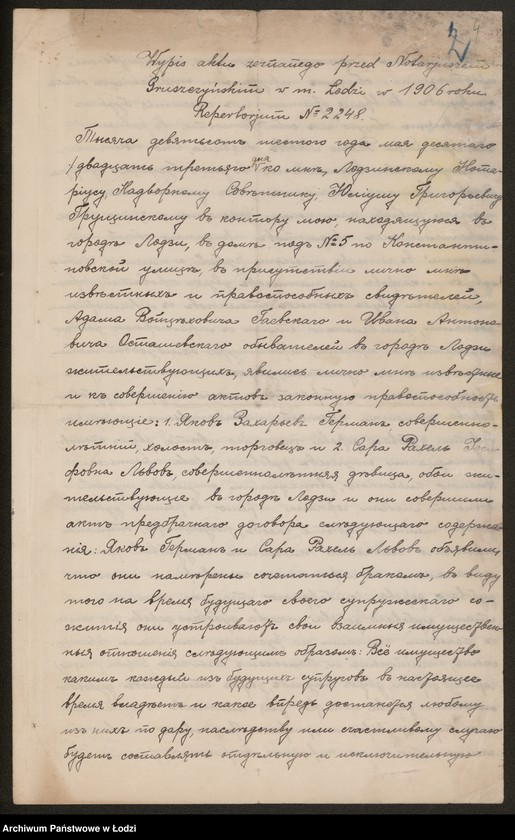 4
2
Wypis aktu zeznanego przed Notaryuszem
Gruszczyńskim w m. Łodzi w 1906 roku
Repertorjum № 2248.
Тысяча девятьсотъ шестого года мая десятаго
/двадцать третьяго дня ко мнѣ, Лодзинскому Нота-
ріусу, Надворному Совѣтнику, Юліушу Григорьевичу
Грущинскому въ контору мою, находящуюся въ
городѣ Лодзи, въ домѣ подъ № 5 по Константи-
новской улицѣ, въ присутствіи лично мнѣ
извѣстныхъ и правоспособныхъ свидѣтелей,
Адама Войцѣховича Гаевскаго и Ивана Антоно-
вича Осташевскаго обывателей въ городѣ Лодзи
жительствующихъ, явились лично мнѣ извѣстные
и къ совершенію актовъ законную правоспособность
имѣющіе: 1. Яковъ Захарьевъ Германъ совершенно-
лѣтній, холостъ, торговецъ и 2. Сара Рахель
фовна Львовъ, совершеннолѣтняя дѣвица, обои жи-
тельствующіе въ городѣ Лодзи и они совершили
актъ предбрачнаго договора слѣдующаго содержа-
нія: Яковъ Германъ и Сара Рахель Львовъ объявили,
что они намѣрены сочетаться бракомъ, въ виду
того на время будущаго своего супружескаго со-
житія они устроиваютъ свои взаимныя имуществен-
ныя отношенія слѣдующимъ образомъ: Всё имущество
какимъ каждый изъ будущихъ супруговъ въ настоящее
время владѣетъ и какое впредь достанется любому
изъ нихъ по дару, наслѣдству или счастливому случаю
будетъ составлять отдѣльную и исключительную
Archiwum Państwowe w Łodzi